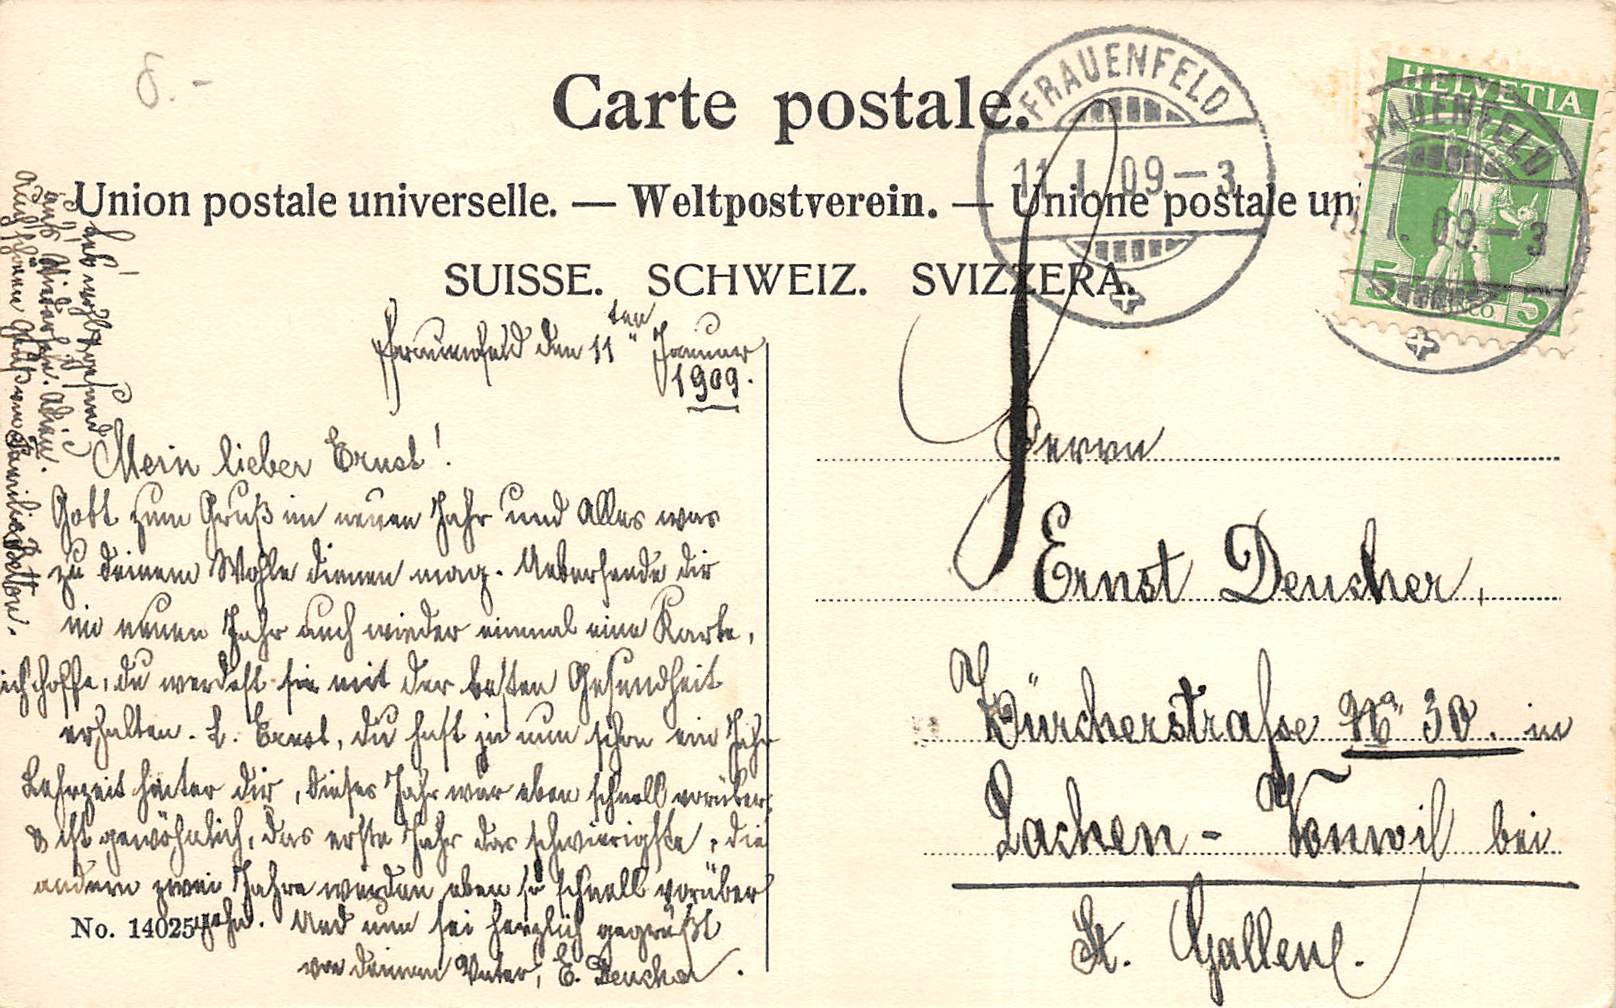 8.-
Carte postale.
Union postale universelle. — Weltpostverein. — Unione postale un
SUISSE. SCHWEIZ. SVIZZERA.
FRAUENFELD
11. I. 09 — 3
HELVETIA
FRAUENFELD
11. I. 09 — 3
5 FRANCO 5
Frauenfeld den 11ten Januar
1909.
Mein lieber Ernst!
Gott zum Gruß im neuen Jahr und Alles was
zu deinem Wohle dienen mag. Uebersende dir
im neuen Jahr auch wieder einmal eine Karte,
ich hoffe, du werdest sie mit der besten Gesundheit
erhalten. L. Ernst, du hast ja nun schon ein Jahr
Lehrzeit hinter dir, dieses Jahr war eben schnell vorüber,
& ist gewöhnlich, das erste Jahr das schwierigste, die
andern zwei Jahre werden eben so schnell vorüber
gehn. Und nun sei herzlich gegrüßt
von deinem Vater, E. Deucher.
No. 14025
Leb wohl & gesund
auf Wiedersehn. Adie
Auch schönen Gruß an Familie
Herrn
Ernst Deucher,
Zürcherstrasse No 30. in
Lachen - Vonwil bei
St. Gallen.